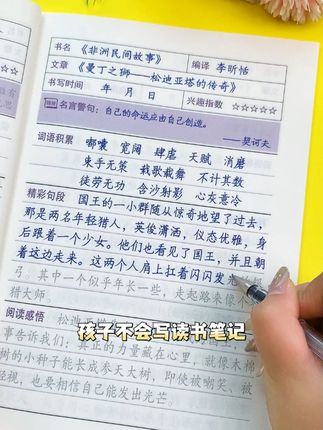 书名 《非洲民间故事》 编译 李昕恬
文章 《曼丁之狮——松迪亚塔的传奇》
书写时间 年 月 日 兴趣指数 ☆☆☆☆☆
名言警句：自己的命运应由自己创造。
——契诃夫
词语积累 嘟囔 宽阔 肆虐 天赋 消磨
束手无策 载歌载舞 不计其数
徒劳无功 含沙射影 心灰意冷
精彩句段 国王的一小群随从惊奇地望了过去，
那是两名年轻猎人，英俊潇洒，仪态优雅，身
后跟着一个少女。他们也看见了国王，并且朝
着这边走来。这两个人肩上扛着闪闪发光
弓，其中一个似乎年长一些，走起路来像个
猎大师。
孩子不会写读书笔记
阅读感悟 松迪
事告诉我们：真正的力量藏在心里，就像木棉
树的小种子能长成参天大树，即使被嘲笑、被
轻视，也要相信自己能发出光芒。